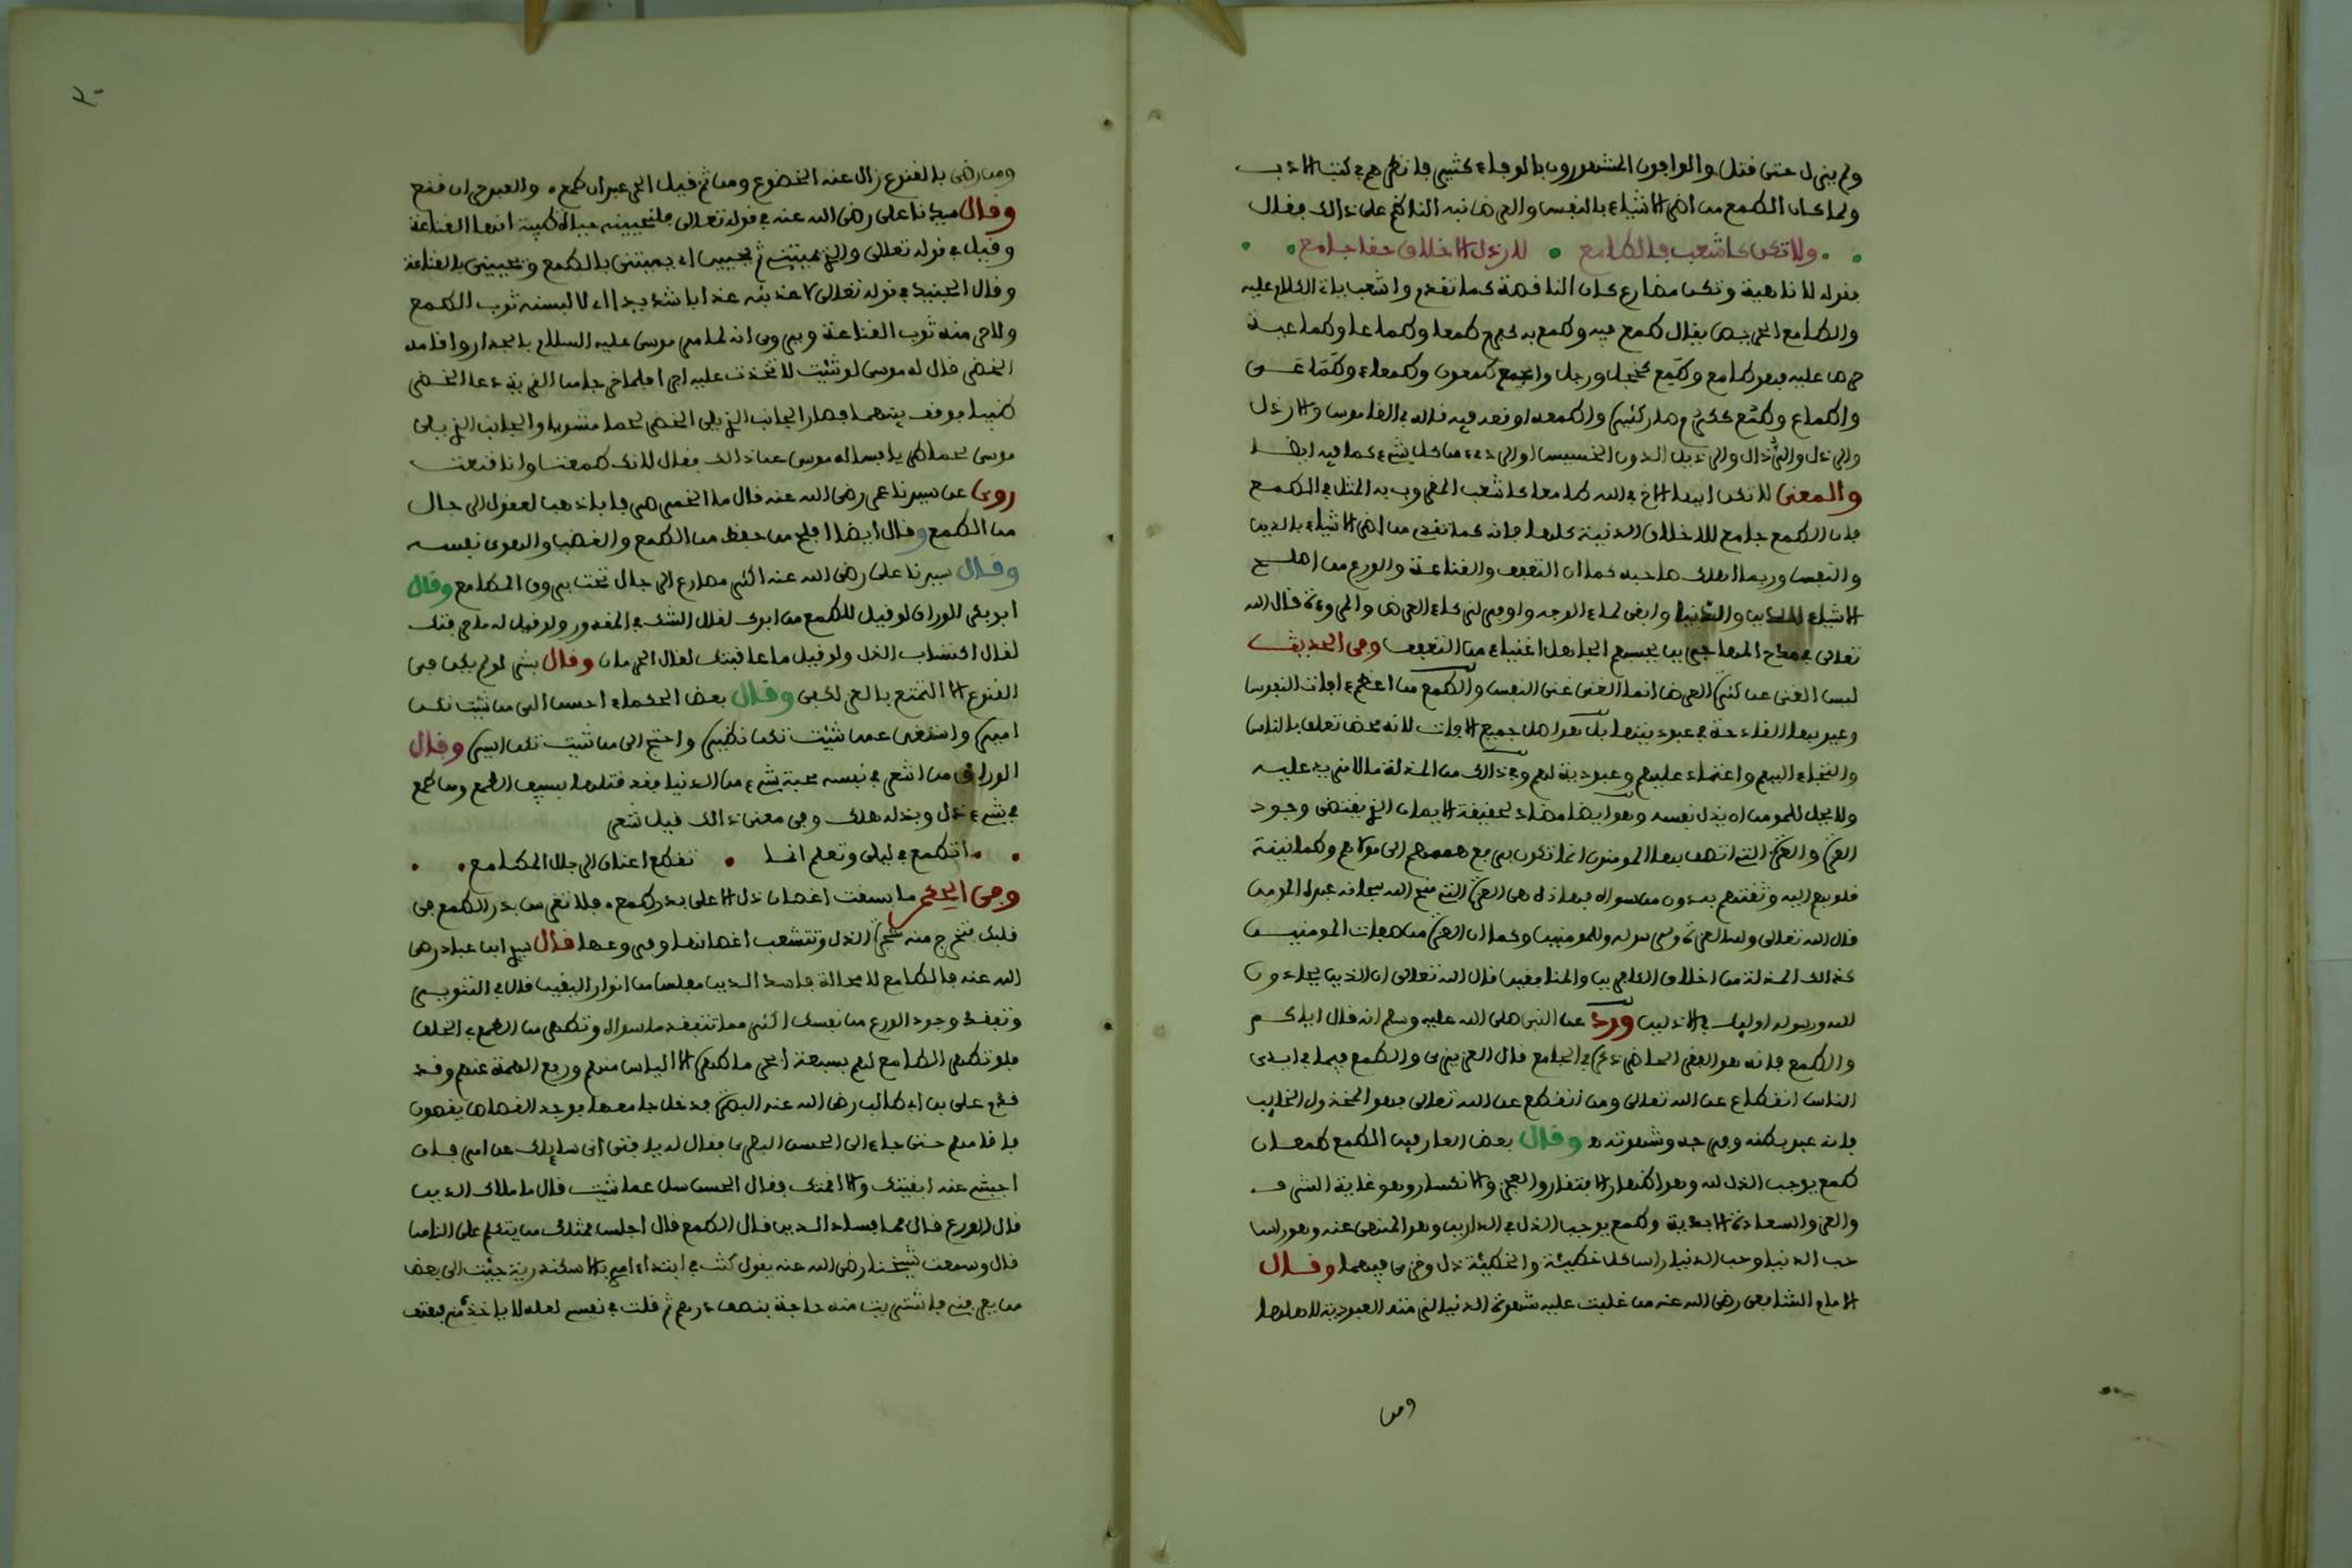 ولم ينزل حتى قتل والوافون المشهورون بالوفاء كثير فانظرهم في كتب الادب
ولما كان الطمع من اضر الاشياء بالنفس والعرض نبه الناظم على ذالك فقال
ولا تكن كاشعب فالطامع لارذل الاخلاق حقا جامع
بقوله لا ناهية وتكن مضارع كان الناقصة كما تقدم واشعب ياتي الكلام عليه
والطامع الحريص يقال طمع فيه وطمع به كفرح طمعا وطماعا وطماعية
حرص عليه فهو طامع وطمع كخجل ورجل والجمع طمعون وطمعاء وطماعى
واطماع وطمع ككرم صار كثيره واطمعه اوقعه فيه قاله في القاموس والارذل
والرذل والرذال والرذيل الدون الخسيس او الردي من كل شيء كما فيه ايضا
والمعنى لا تكن ايها الاخ في الله طامعا كاشعب المضروب به المثل في الطمع
فان الطمع جامع للاخلاق الدنية كلها فانه كما تقدم من اضر الاشياء بالدين
والنفس وربما اهلك صاحبه كما ان التعفف والقناعة والورع من اصلح
الاشياء للدين والدنيا وابقى لماء الوجه واوفر لزكاء العرض والمروءة قال الله
تعالى في مدح المهاجرين يحسبهم الجاهل اغنياء من التعفف وفي الحديث
ليس الغنى عن كثرة العرض انما الغنى غنى النفس والطمع من اعظم ءافات النفوس
وعيوبها القادحة في عبوديتها بل هو اصل جميع الافات لانه محض تعلق بالناس
والتجاء اليهم واعتماد عليهم وعبودية لهم وفي ذالك من المذلة ما لا مزيد عليه
ولا يحل للمومن ان يذل نفسه وهو ايضا مضاد لحقيقة الايمان الذي يقتضي وجود
العزة والعزة التي اتصف بها المومنون انما تكون برفع هممهم الى مولاهم وطمانينة
قلوبهم اليه وثقتهم به دون من سواه فهاذه هي العزة التي منح الله بها عبده المومن
قال الله تعالى ولله العزة ولرسوله وللمومنين وكما ان العزة من صفات المومنين
كذالك المذلة من اخلاق الكافرين والمنافقين قال الله تعالى ان الذين يحادون
الله ورسوله اوليك في الاذلين ورد عن النبي صلى الله عليه وسلم انه قال اياكم
والطمع فانه هو الفقر الحاضر ذكره في الجامع قال العزيزي والطمع فيما في ايدي
الناس انقطاع عن الله تعالى ومن انقطع عن الله تعالى فهو المخذول الخايب
فانه عبد بطنه وفرجه وشهوته وقال بعض العارفين الطمع طمعان
طمع يوجب الذل لله وهو اظهار الافتقار والعجز والانكسار وهو غاية الشرف
والعز والسعادة الابدية وطمع يوجب الذل في الدارين وهو المنهى عنه وهو راس
حب الدنيا وحب الدنيا راس كل خطيئة والخطيئة ذل وخزي فيهما وقال
الامام الشافعي رضي الله عنه من غلبت عليه شهوة الدنيا لزمته العبودية لاهلها
ومن
ومن رضي بالقنوع زال عنه الخضوع ومن ثم قيل الحر عبد ان طمع والعبد حر ان قنع
وقال سيدنا علي رضي الله عنه في قوله تعالى فلنحيينه حياة طيبة انها القناعة
وقيل في قوله تعالى والذي يميتني ثم يحيين اي يميتني بالطمع ويحييني بالقناعة
وقال الجنيد في قوله تعالى لاعذبنه عذابا شديدا اي لالبسنه ثوب الطمع
ولاحرمنه ثوب القناعة ويروى انه لما مر موسى عليه السلام بالجدار واقامه
الخضر قال له موسى لو شئت لاتخذت عليه اجرا فلما خرجا من القرية دعا الخضر
ظبيا فوقف بينهما فصار الجانب الذي يلي الخضر لحما مشويا والجانب الذي يلي
موسى لحما طريا فساله موسى عن ذالك فقال لانك طمعت وانا قنعت
روى عن سيدنا عمر رضي الله عنه قال ما الخمر صرفا باذهب لعقول الرجال
من الطمع وقال ايضا افلح من حفظ من الطمع والغضب والهوى نفسه
وقال سيدنا علي رضي الله عنه اكثر مصارع الرجال تحت بروق المطامع وقال
ابو بكر الوراق لو قيل للطمع من ابوك لقال الشك في المقدور ولو قيل له ما حرفتك
لقال اكتساب الذل ولو قيل ما عاقبتك لقال الحرمان وقال بشر لو لم يكن في
القنوع الا التمتع بالعز لكفى وقال بعض الحكماء احسن الى من شئت تكن
اميره واستغن عمن شئت تكن نظيره واحتج الى من شئت تكن اسيره وقال
الوراق من اشعر في نفسه محبة شيء من الدنيا فقد قتلها بسيف الطمع ومن طمع
في شيء ذل وبذله هلك وفي معنى ذالك قيل شعر
اتطمع في ليلى وتعلم انما تقطع اعناق الرجال المطامع
وفي الحكم ما بسقت اغصان ذل الا على بذر طمع فلا تغرس بذر الطمع في
قلبك فتخرج منه شجرة الذل وتتشعب اغصانها وفروعها قال سيدي ابن عباد رضي
الله عنه فالطامع لا محالة فاسد الدين مفلس من انوار اليقين قال في التنوير
وتفقد وجود الورع من نفسك اكثر مما تتفقد ما سواه وتطهر من الطمع في الخلق
فلو تطهر الطامع فيهم بسبعة ابحر ما طهره الا الياس منهم ورفع الهمة عنهم وقد
قدم علي بن ابي طالب رضي الله عنه البصرة فدخل جامعها فوجد القصاص يقصون
فاقامهم حتى جاء الى الحسن البصري فقال له يا فتى اني سايلك عن امر فان
اجبتني عنه ابقيتك والا اقمتك فقال الحسن سل عما شئت قال ما ملاك الدين
قال الورع قال فما فساد الدين قال الطمع قال اجلس فمثلك من يتكلم على الناس
قال وسمعت شيخنا رضي الله عنه يقول كنت في ابتداء امري بالاسكندرية جئت الى بعض
من يعرفني فاشتريت منه حاجة بنصف درهم ثم قلت في نفسي لعله لا ياخذه مني فهتف